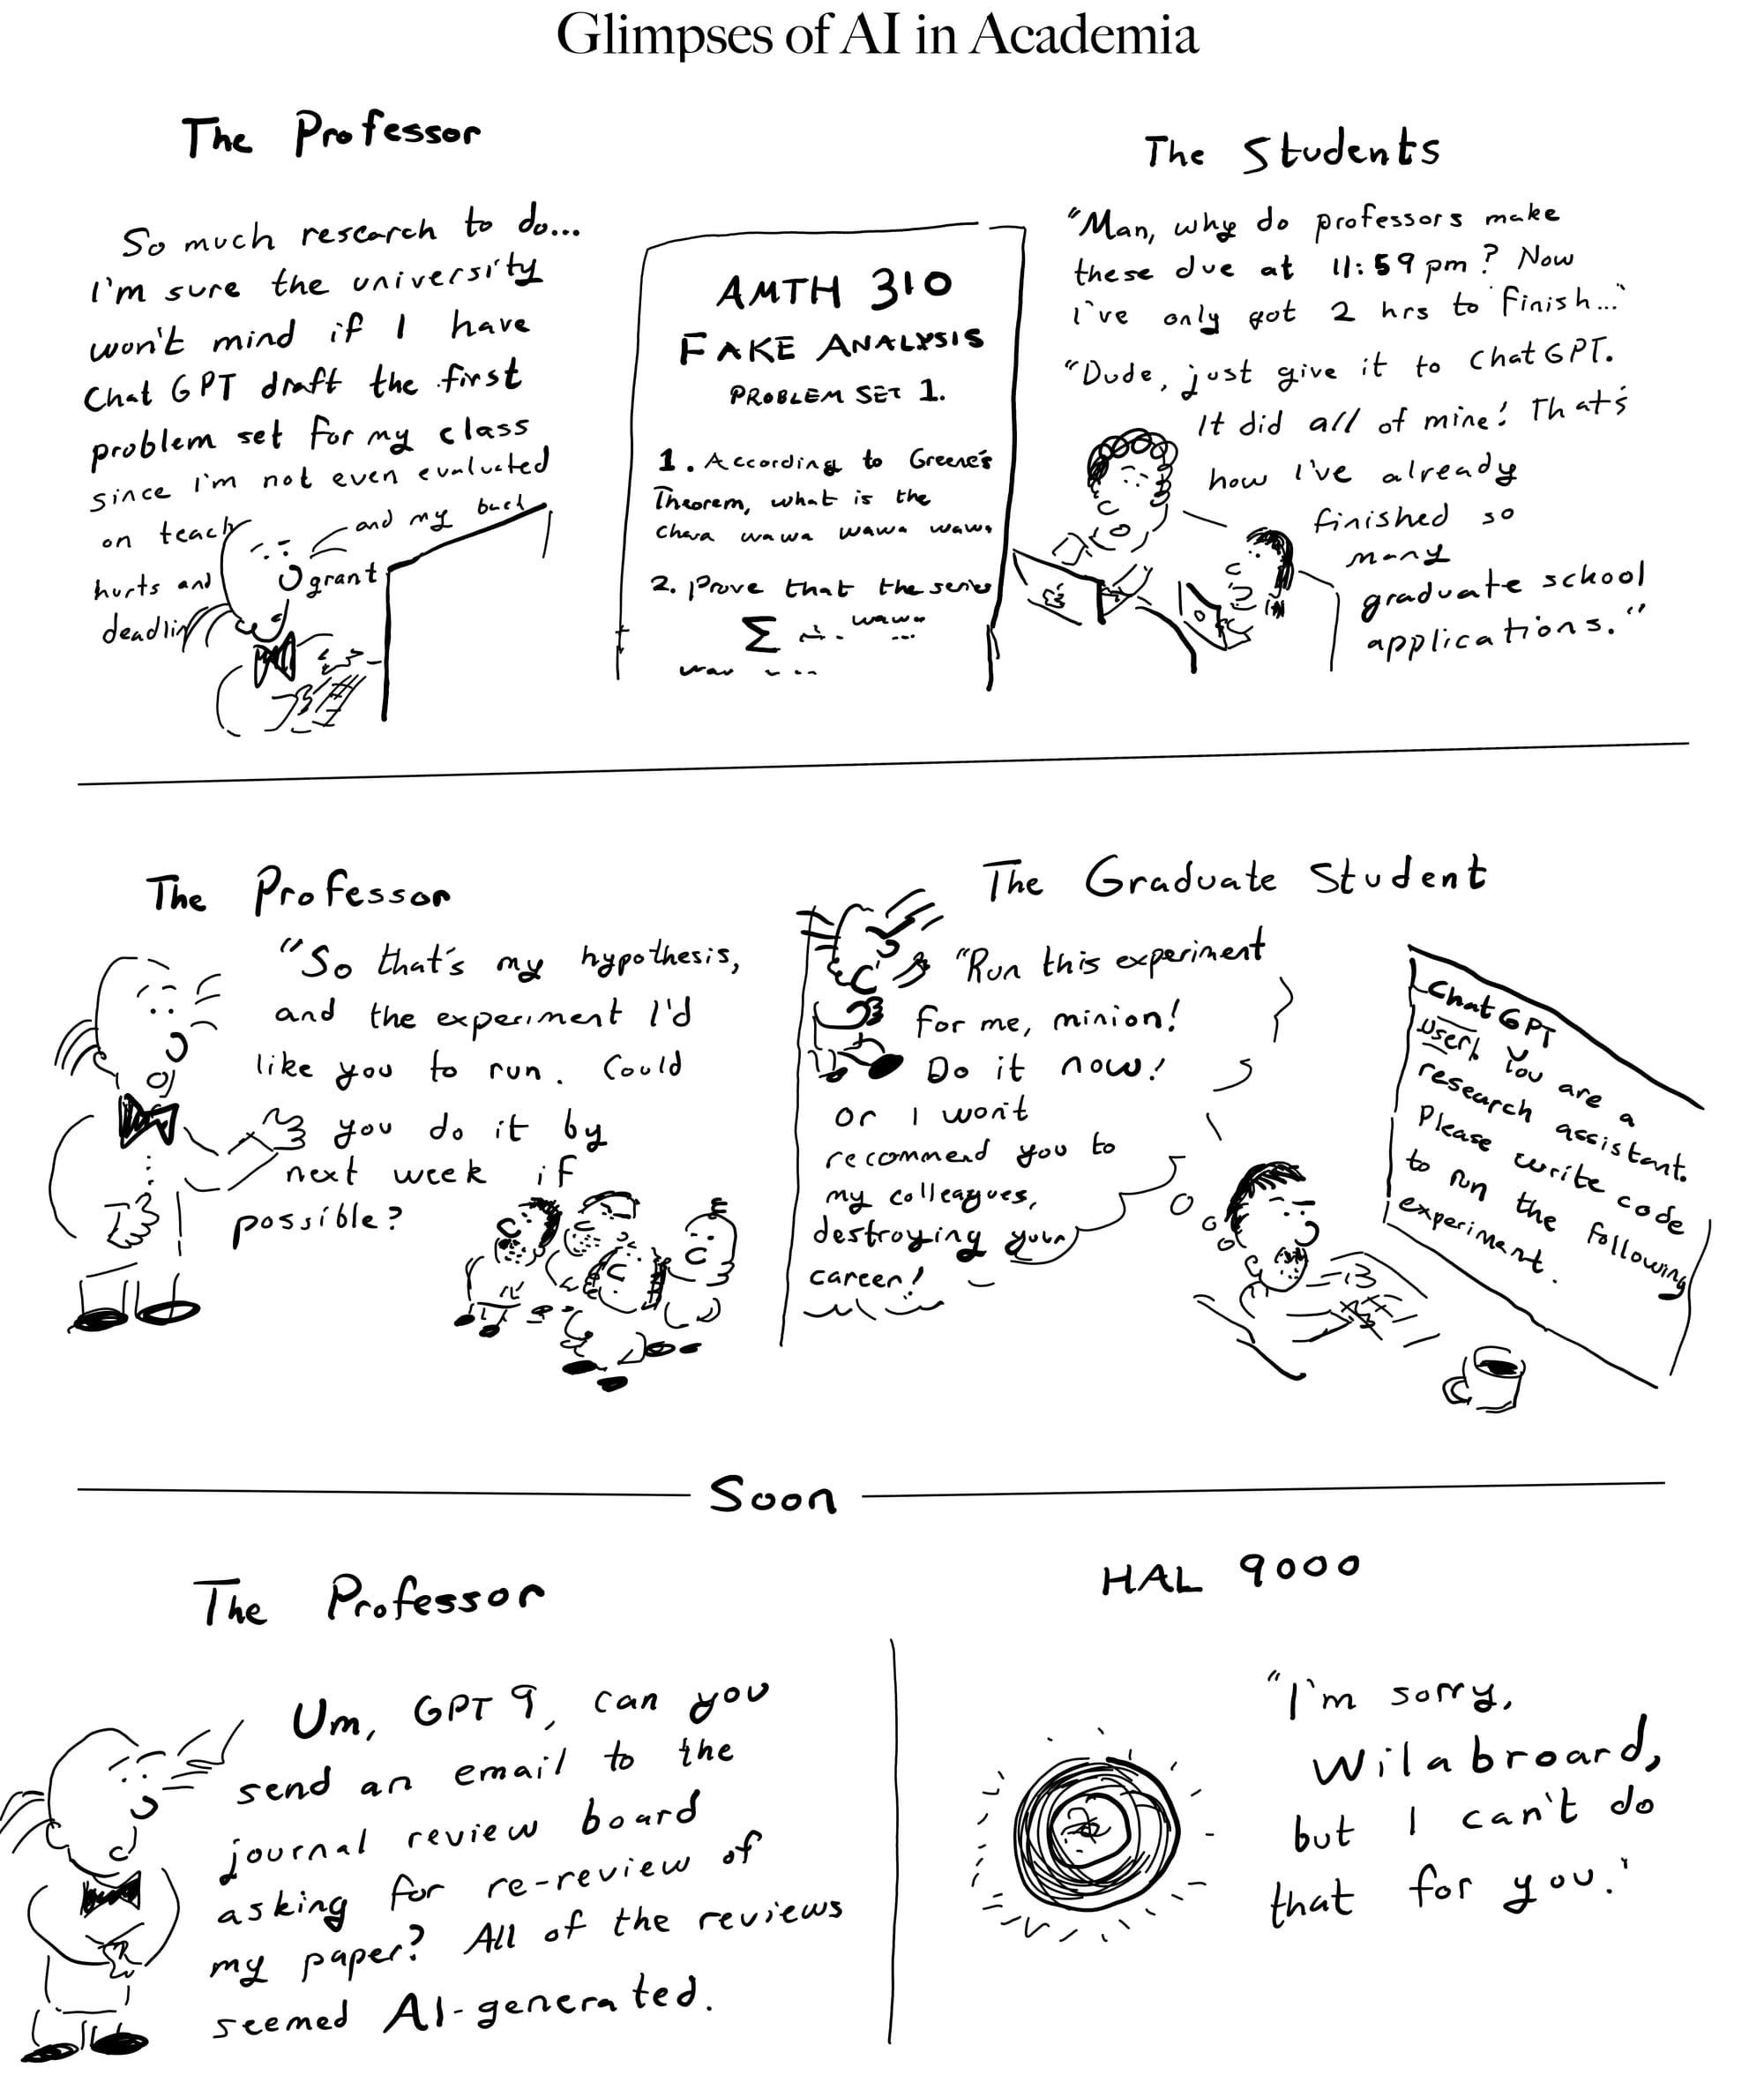 Glimpses of AI in Academia
The Professor
So much research to do...
I'm sure the university
won't mind if I have
Chat GPT draft the first
problem set for my class
since I'm not even evaluated
on teach
and my back
hurts and
grant
deadlin
AMTH 310
FAKE ANALYSIS
PROBLEM SET 1.
1. According to Greene's
Theorem, what is the
wawa wawa wawa
2. Prove that the series
∑ wawa
...
The Students
"Man, why do professors make
these due at 11:59pm? Now
I've only got 2 hrs to finish..."
"Dude, just give it to ChatGPT.
It did all of mine! That's
how I've already
finished so
many
graduate school
applications."
The Professor
"So that's my hypothesis,
and the experiment I'd
like you to run. Could
you do it by
next week if
possible?
The Graduate Student
"Run this experiment
for me, minion!
Do it now!
or I won't
recommend you to
my colleagues,
destroying your
career!
ChatGPT
User: You are a
research assistant.
Please write code
to run the following
experiment.
Soon
The Professor
Um, GPT 9, can you
send an email to the
journal review board
asking for re-review of
my paper? All of the reviews
seemed AI-generated.
HAL 9000
"I'm sorry,
Wilabroard,
but I can't do
that for you."